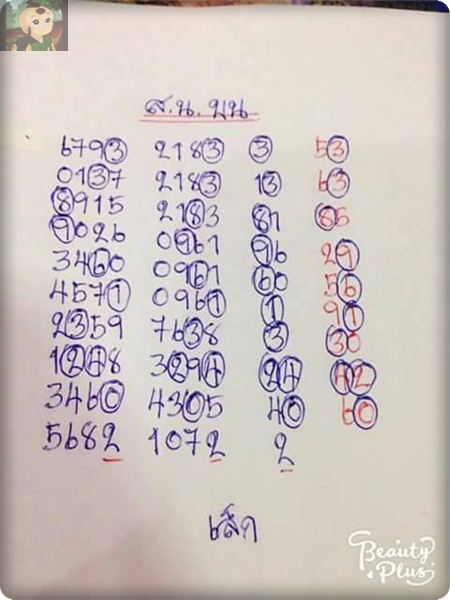 ส.น. บน
6793 2183 3 53
0137 2183 13 63
8915 2183 81 85
9026 0961 96 29
3460 0961 60 56
4571 0961 1 91
2359 7638 3 30
1248 3294 24 42
3460 4305 40 60
5682 1072 2
เล็ก
Beauty Plus